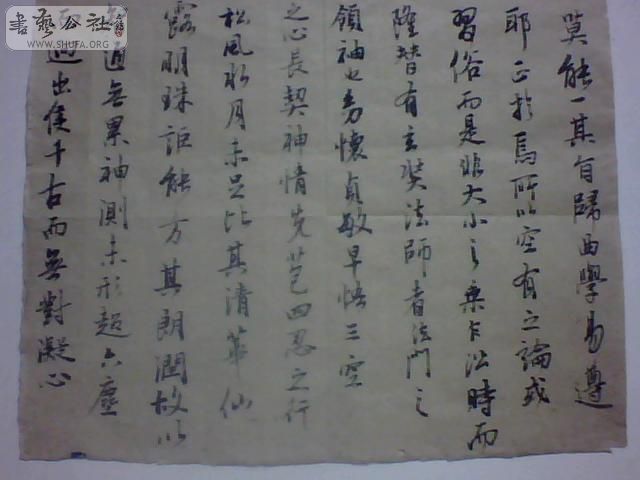 莫能一其旨歸曲學易遵
耶正於焉所以空有之論或
習俗而是非大小之乘乍沿時而
隆替有玄奘法師者法門之
領袖也幼懷貞敏早悟三空
之心長契神情先苞四忍之行
松風水月未足比其清華仙
露明珠詎能方其朗潤故以
通無累神測未形超六塵
迥出隻千古而無對凝心
書藝公社
WWW.SHUFA.ORG